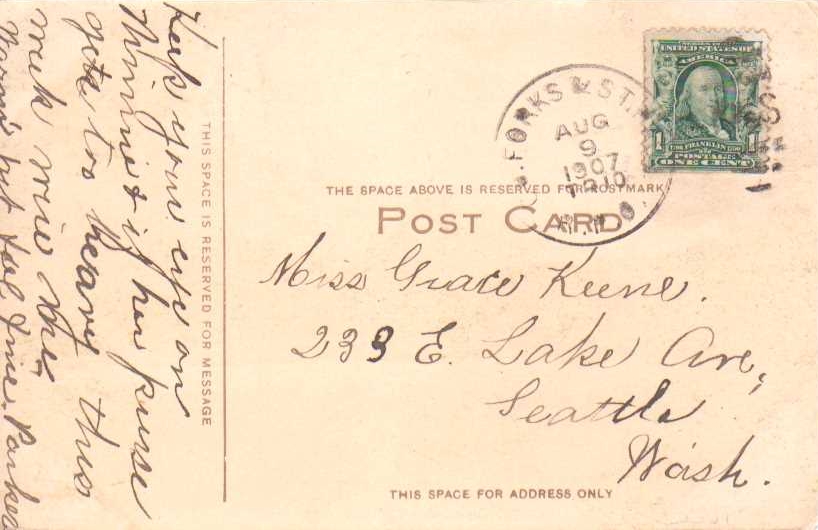 Keep your eye on
Minnie & if her purse
gets too heavy this
week wire me,
Warm but feel fine. Parker
THIS SPACE IS RESERVED FOR MESSAGE
UNITED STATES OF
AMERICA
1 FRANKLIN 1
POSTAGE
ONE CENT
FORKS & ST.
AUG
9
1907
TR 10
R.P.O.
THE SPACE ABOVE IS RESERVED FOR POSTMARK
POST CARD
Miss Grace Keene.
233 E. Lake Ave,
Seattle
Wash.
THIS SPACE FOR ADDRESS ONLY